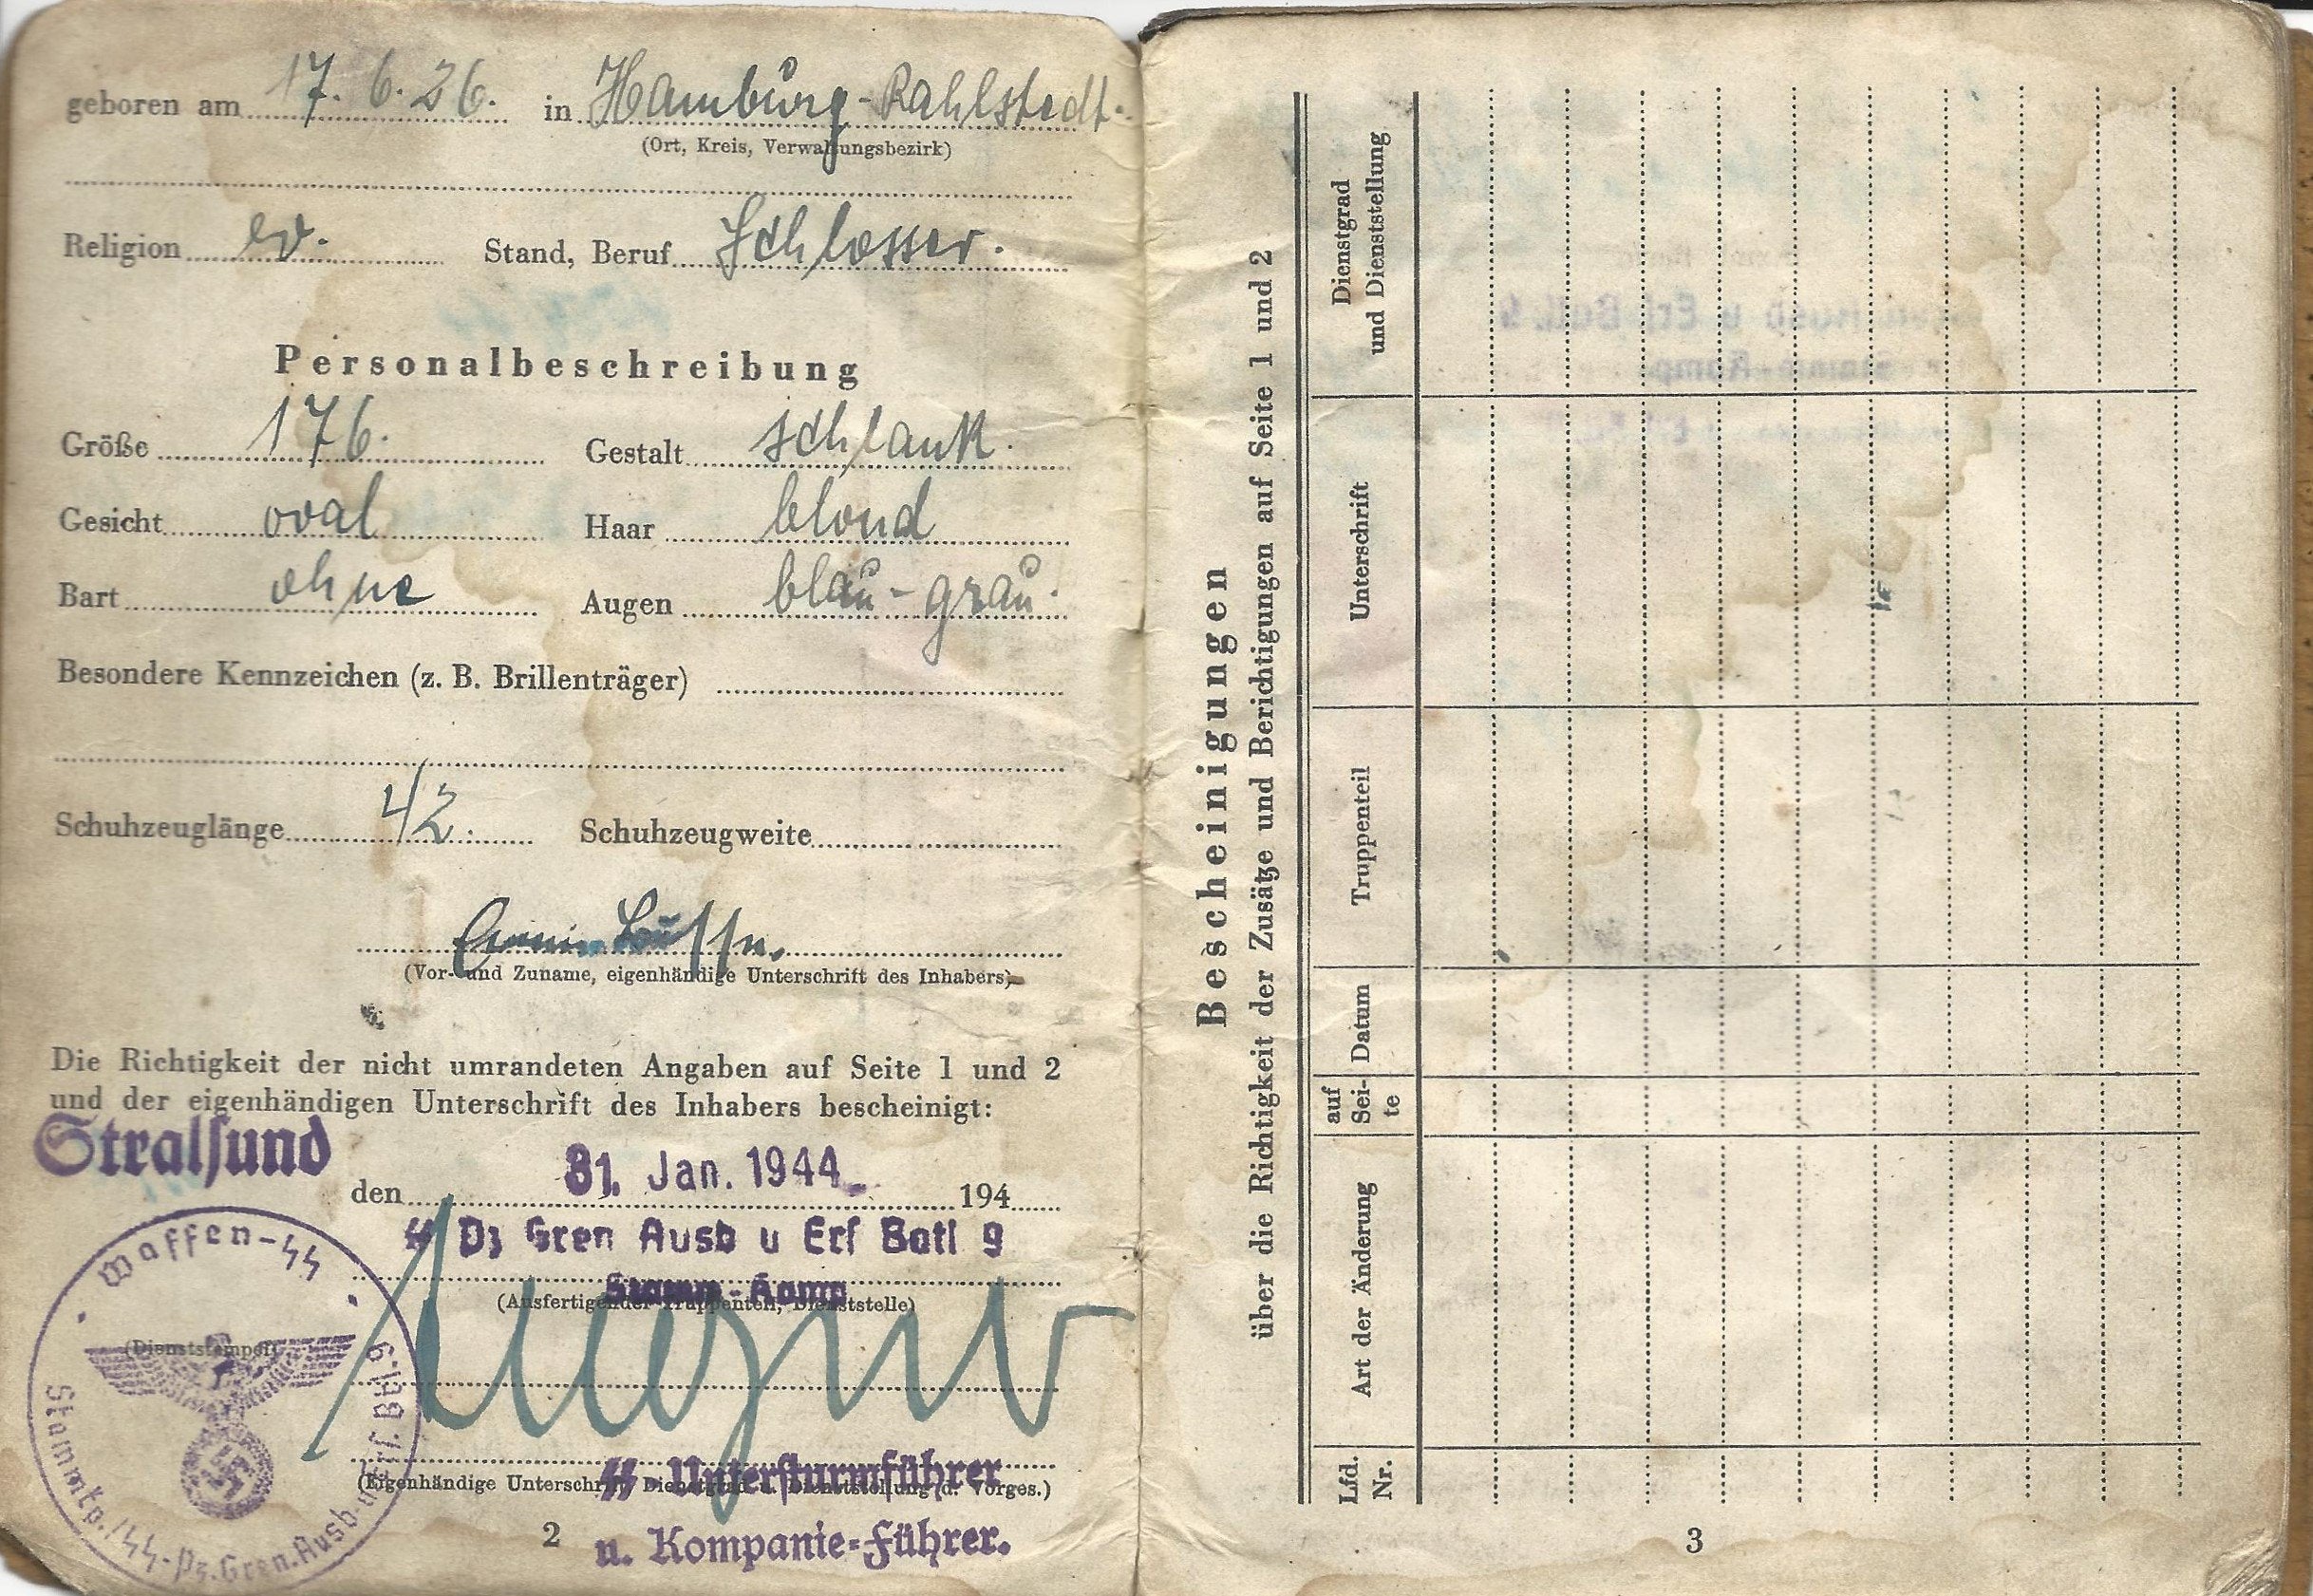 geboren am 17. 6. 26. in Hamburg-Rahlstedt.
(Ort, Kreis, Verwaltungsbezirk)
Religion ev. Stand, Beruf Schlosser.
Personalbeschreibung
Größe 176. Gestalt schlank.
Gesicht oval Haar blond
Bart ohne Augen blau-grau.
Besondere Kennzeichen (z. B. Brillenträger)
Schuhzeuglänge 42. Schuhzeugweite
(Vor- und Zuname, eigenhändige Unterschrift des Inhabers)
Die Richtigkeit der nicht umrandeten Angaben auf Seite 1 und 2
und der eigenhändigen Unterschrift des Inhabers bescheinigt:
Stralsund
den 31. Jan. 1944 194
SS Pz Gren Ausb u Ers Batl 9
Stamm-Komp
(Ausfertigender Truppenteil, Dienststelle)
Waffen-SS
(Dienststempel)
Stammkp./SS-Pz.Gren.Ausb.u.Ers.Btl.9
SS Untersturmführer
(Eigenhändige Unterschrift, Dienstgrad u. Dienststellung d. Vorges.)
u. Kompanie-Führer.
2
Bescheinigungen
über die Richtigkeit der Zusätze und Berichtigungen auf Seite 1 und 2
Lfd. Nr.
Art der Änderung
auf Sei-te
Datum
Truppenteil
Unterschrift
Dienstgrad und Dienststellung
3